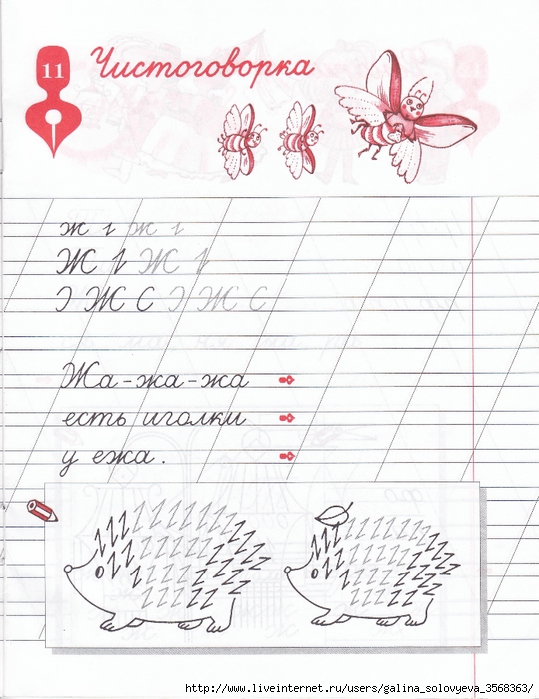 11
Чистоговорка
ж г ж г
Ж 1 Ж 1
Э Ж С Э Ж С
Жа-жа-жа
есть иголки
у ежа.
http://www.liveinternet.ru/users/galina_solovyeva_3568363/